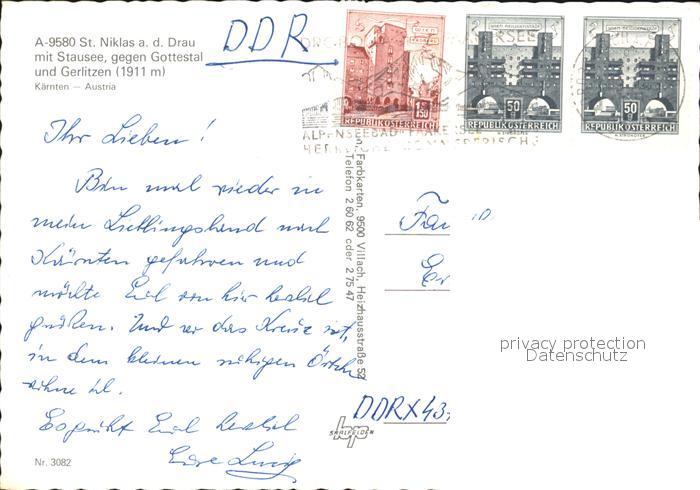 A-9580 St. Niklas a. d. Drau
mit Stausee, gegen Gottestal
und Gerlitzen (1911 m)
Kärnten — Austria
DDR
1.50
REPUBLIK ÖSTERREICH
50 g
REPUBLIK ÖSTERREICH
50 g
REPUBLIK ÖSTERREICH
ALPENSEEBAD
Ihr Lieben!
Bin mal wieder in
mein Lieblingsland nach
Kärnten gefahren und
möchte Euch von hier herzlich
grüßen. Und wo das Kreuz ist,
in dem kleinen ruhigen
wohne ich.
Es grüßt Euch herzlich
Eure
Farbkarten, 9500 Villach, Heizhausstraße 52
Telefon 2 60 62 oder 2 75 47
Fa
DDR X 43
SAALFELDEN
Nr. 3082
privacy protection
Datenschutz